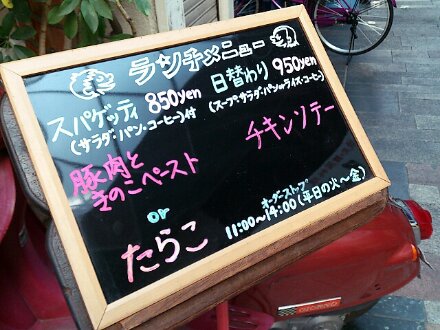 ランチメニュー
スパゲッティ 850yen
(サラダ・パン・コーヒー)付
豚肉と
きのこペースト
or
たらこ
日替わり 950yen
(スープ・サラダ・パンorライス・コーヒー)
チキンソテー
オーダーストップ
11:00～14:00 (平日の火～金)
GIORNO